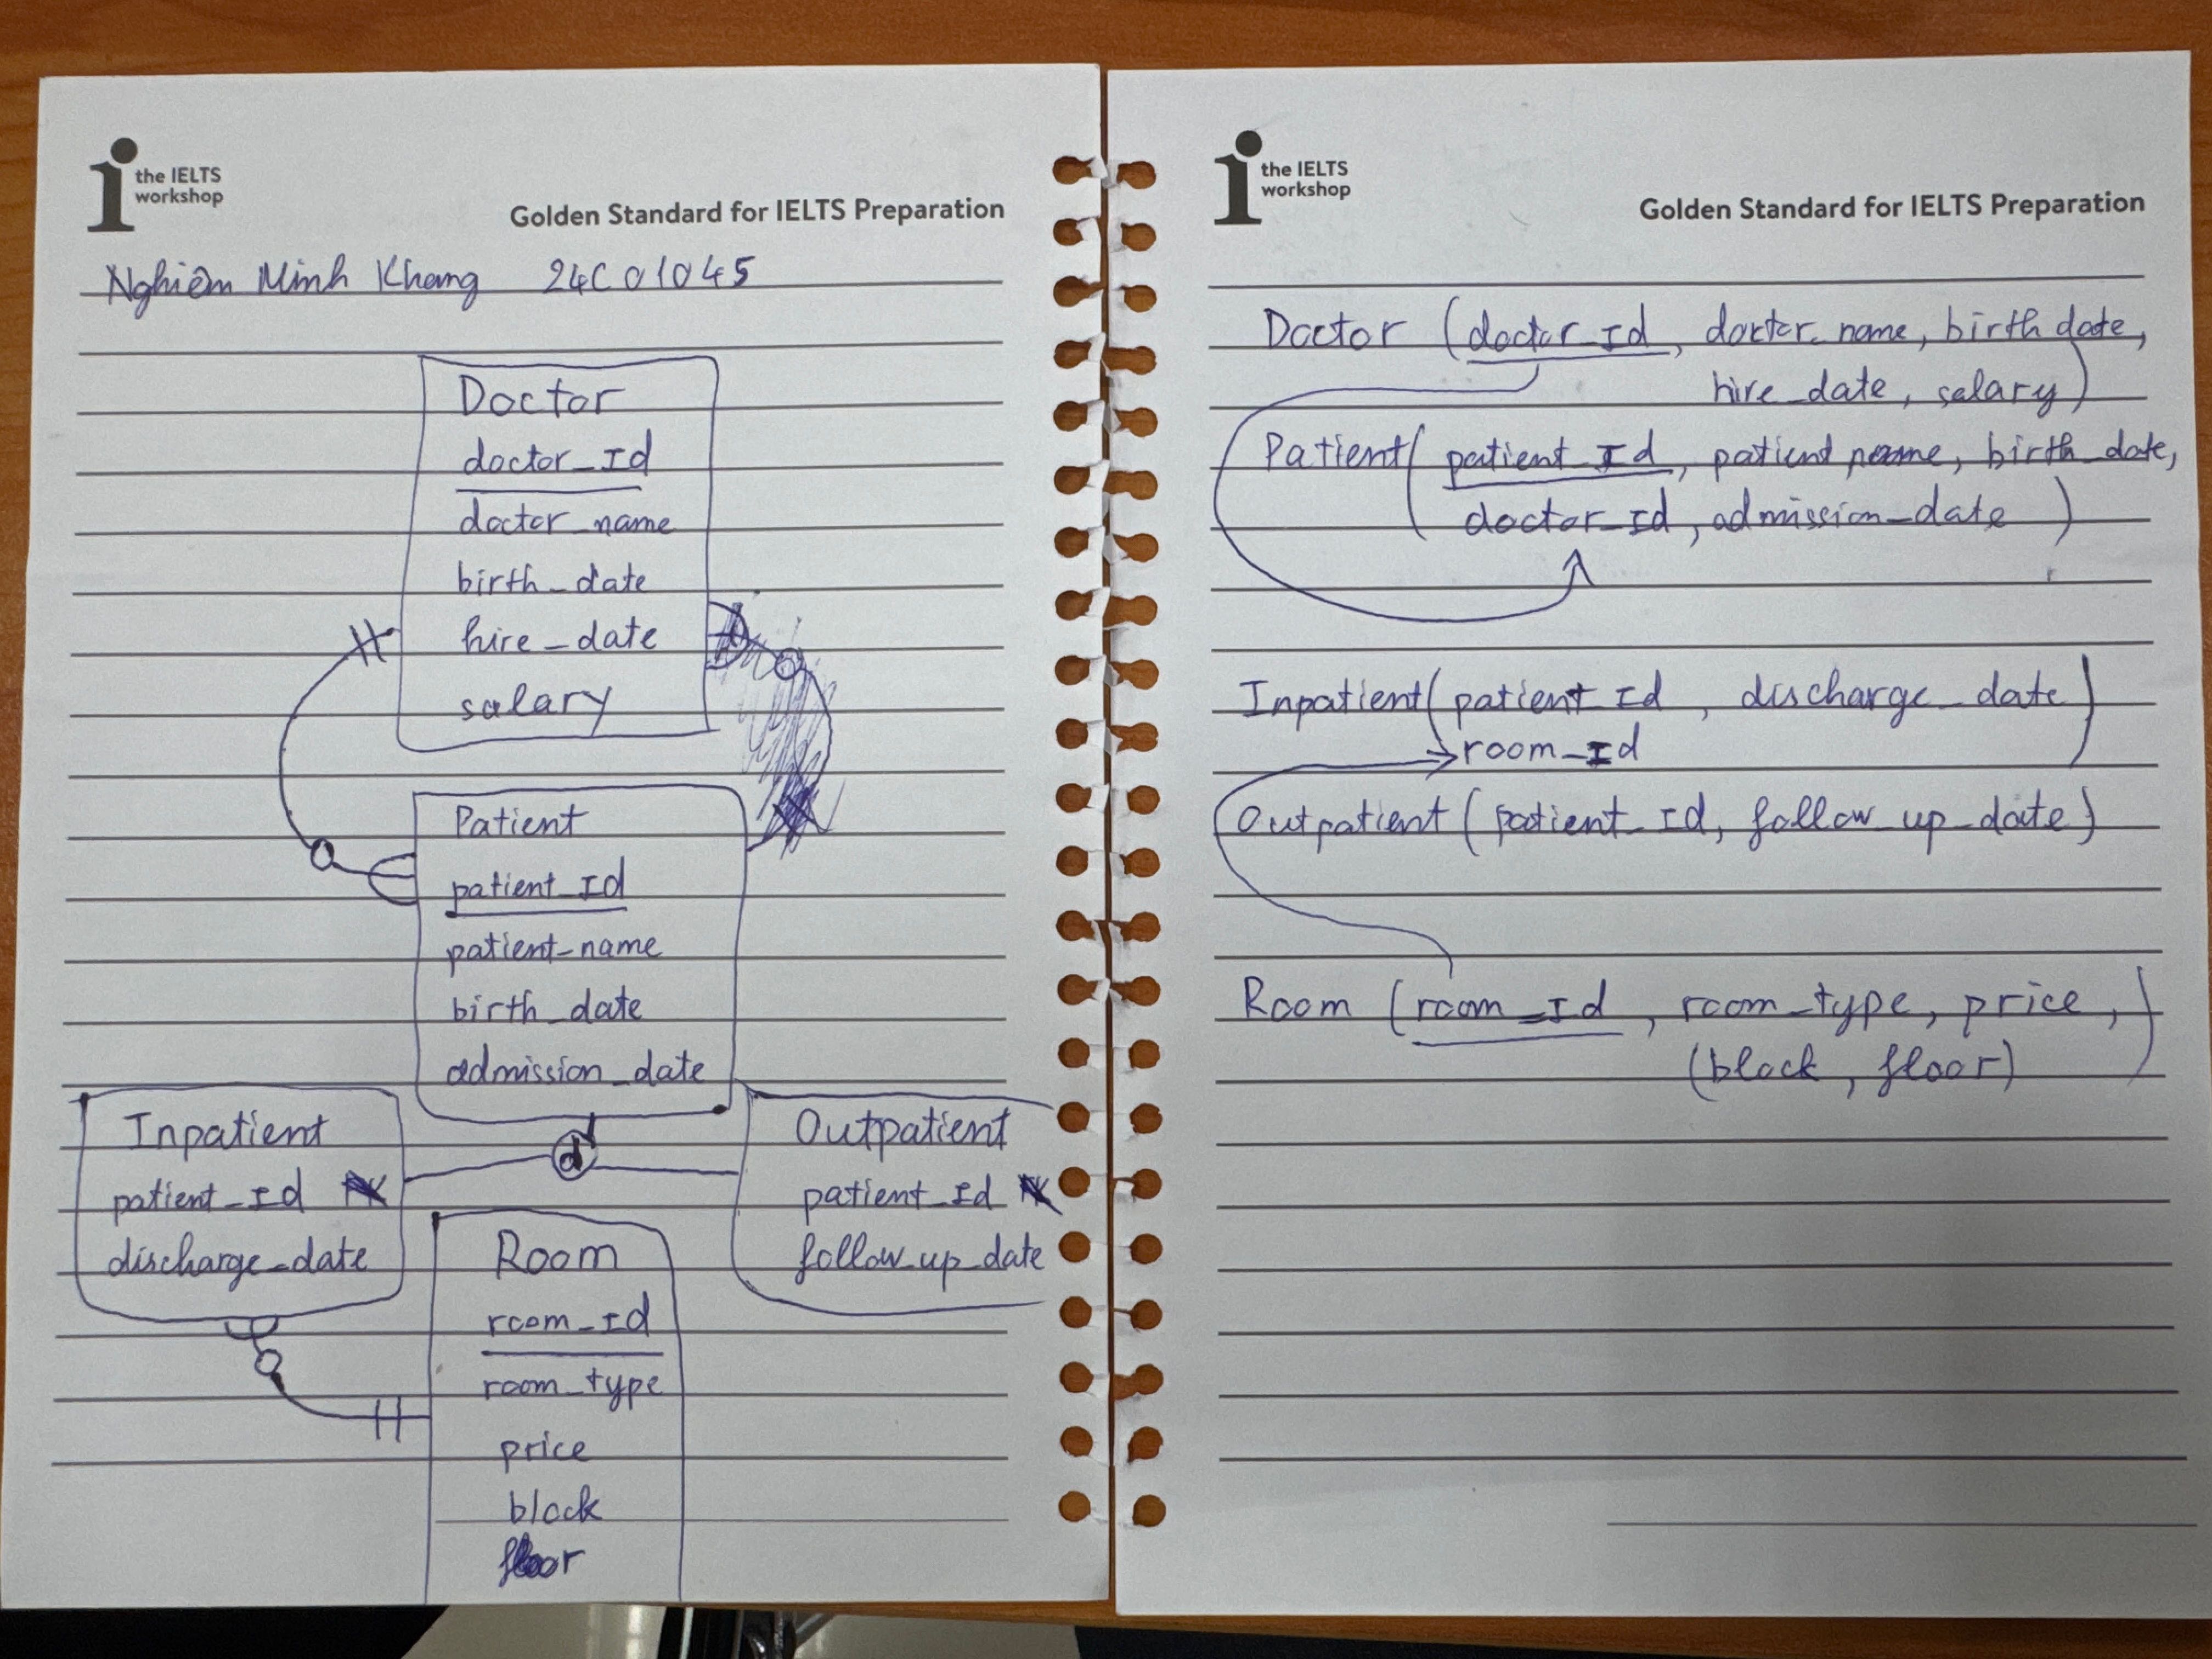 the IELTS
workshop
Golden Standard for IELTS Preparation
Nghiêm Minh Khang 24C01045
Doctor
doctor_Id
doctor_name
birth_date
hire_date
salary
Patient
patient_Id
patient_name
birth_date
admission_date
d
Inpatient
patient_Id
discharge_date
Outpatient
patient_Id
follow_up_date
Room
room_Id
room_type
price
block
floor
the IELTS
workshop
Golden Standard for IELTS Preparation
Doctor (doctor_Id, doctor_name, birth date,
hire_date, salary)
Patient (patient_Id, patient name, birth_date,
doctor_Id, admission_date)
Inpatient (patient_Id, discharge_date)
room_Id
Outpatient (patient_Id, follow_up_date)
Room (room_Id, room_type, price,)
(block, floor)